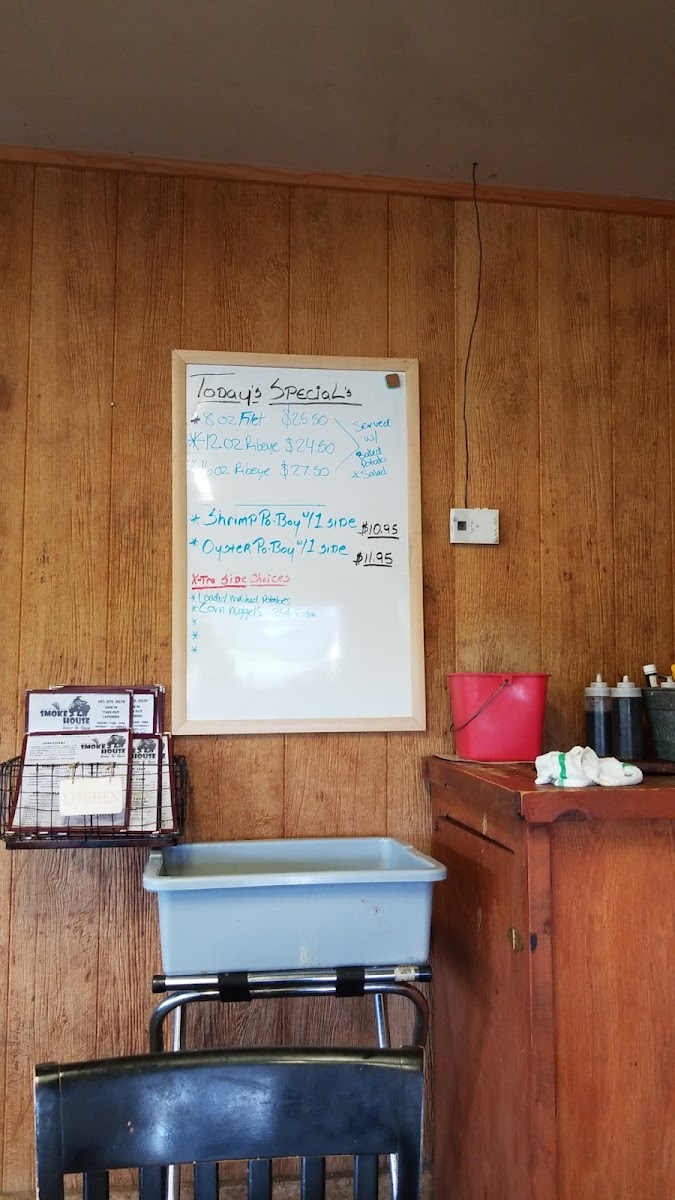 Today's Special's
* 8 oz Filet $25.50
* 12 oz Ribeye $24.50
16 oz Ribeye $27.50
Served
w/
Baked
Potato
+ Salad
* Shrimp Po-Boy w/ 1 side $10.95
* Oyster Po-Boy w/ 1 side $11.95
X-Tra Side Choices
* Loaded Mashed Potatoes
* Corn Nuggets
*
*
*
SMOKE'S
HOUSE
SMOKE'S
HOUSE
HOUSE
KITCHEN